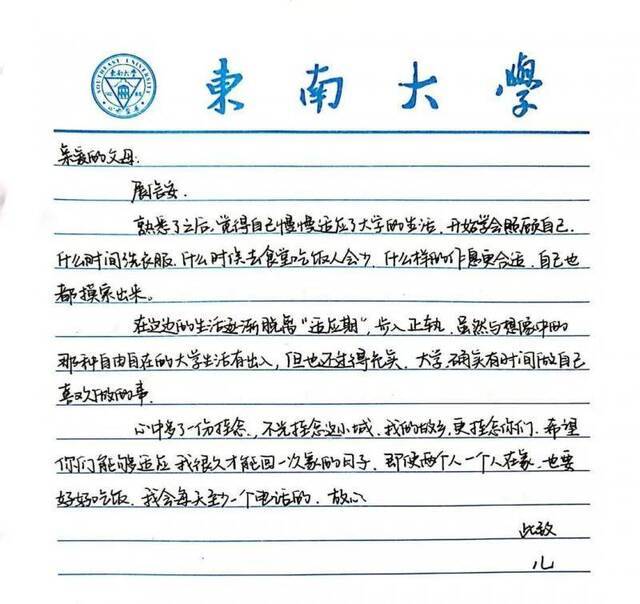 SOUTHEAST UNIVERSITY
東南大學
東南大學
亲爱的父母:
展信安.
熟悉了之后,觉得自己慢慢适应了大学的生活,开始学会照顾自己.
什么时间洗衣服.什么时候去食堂吃饭人会少,什么样的作息更合适,自己也
都摸索出来。
在这边的生活逐渐脱离“适应期”,步入正轨,虽然与想像中的
那种自由自在的大学生活有出入,但也还过得充实,大学,确实有时间做自己
喜欢做的事.
心中多了一份挂念,不光挂念这小城,我的故乡,更挂念你们.希望
你们能够适应我很久才能回一次家的日子,即使两个人一个人在家,也要
好好吃饭,我会每天至少一个电话的.放心
此致
儿